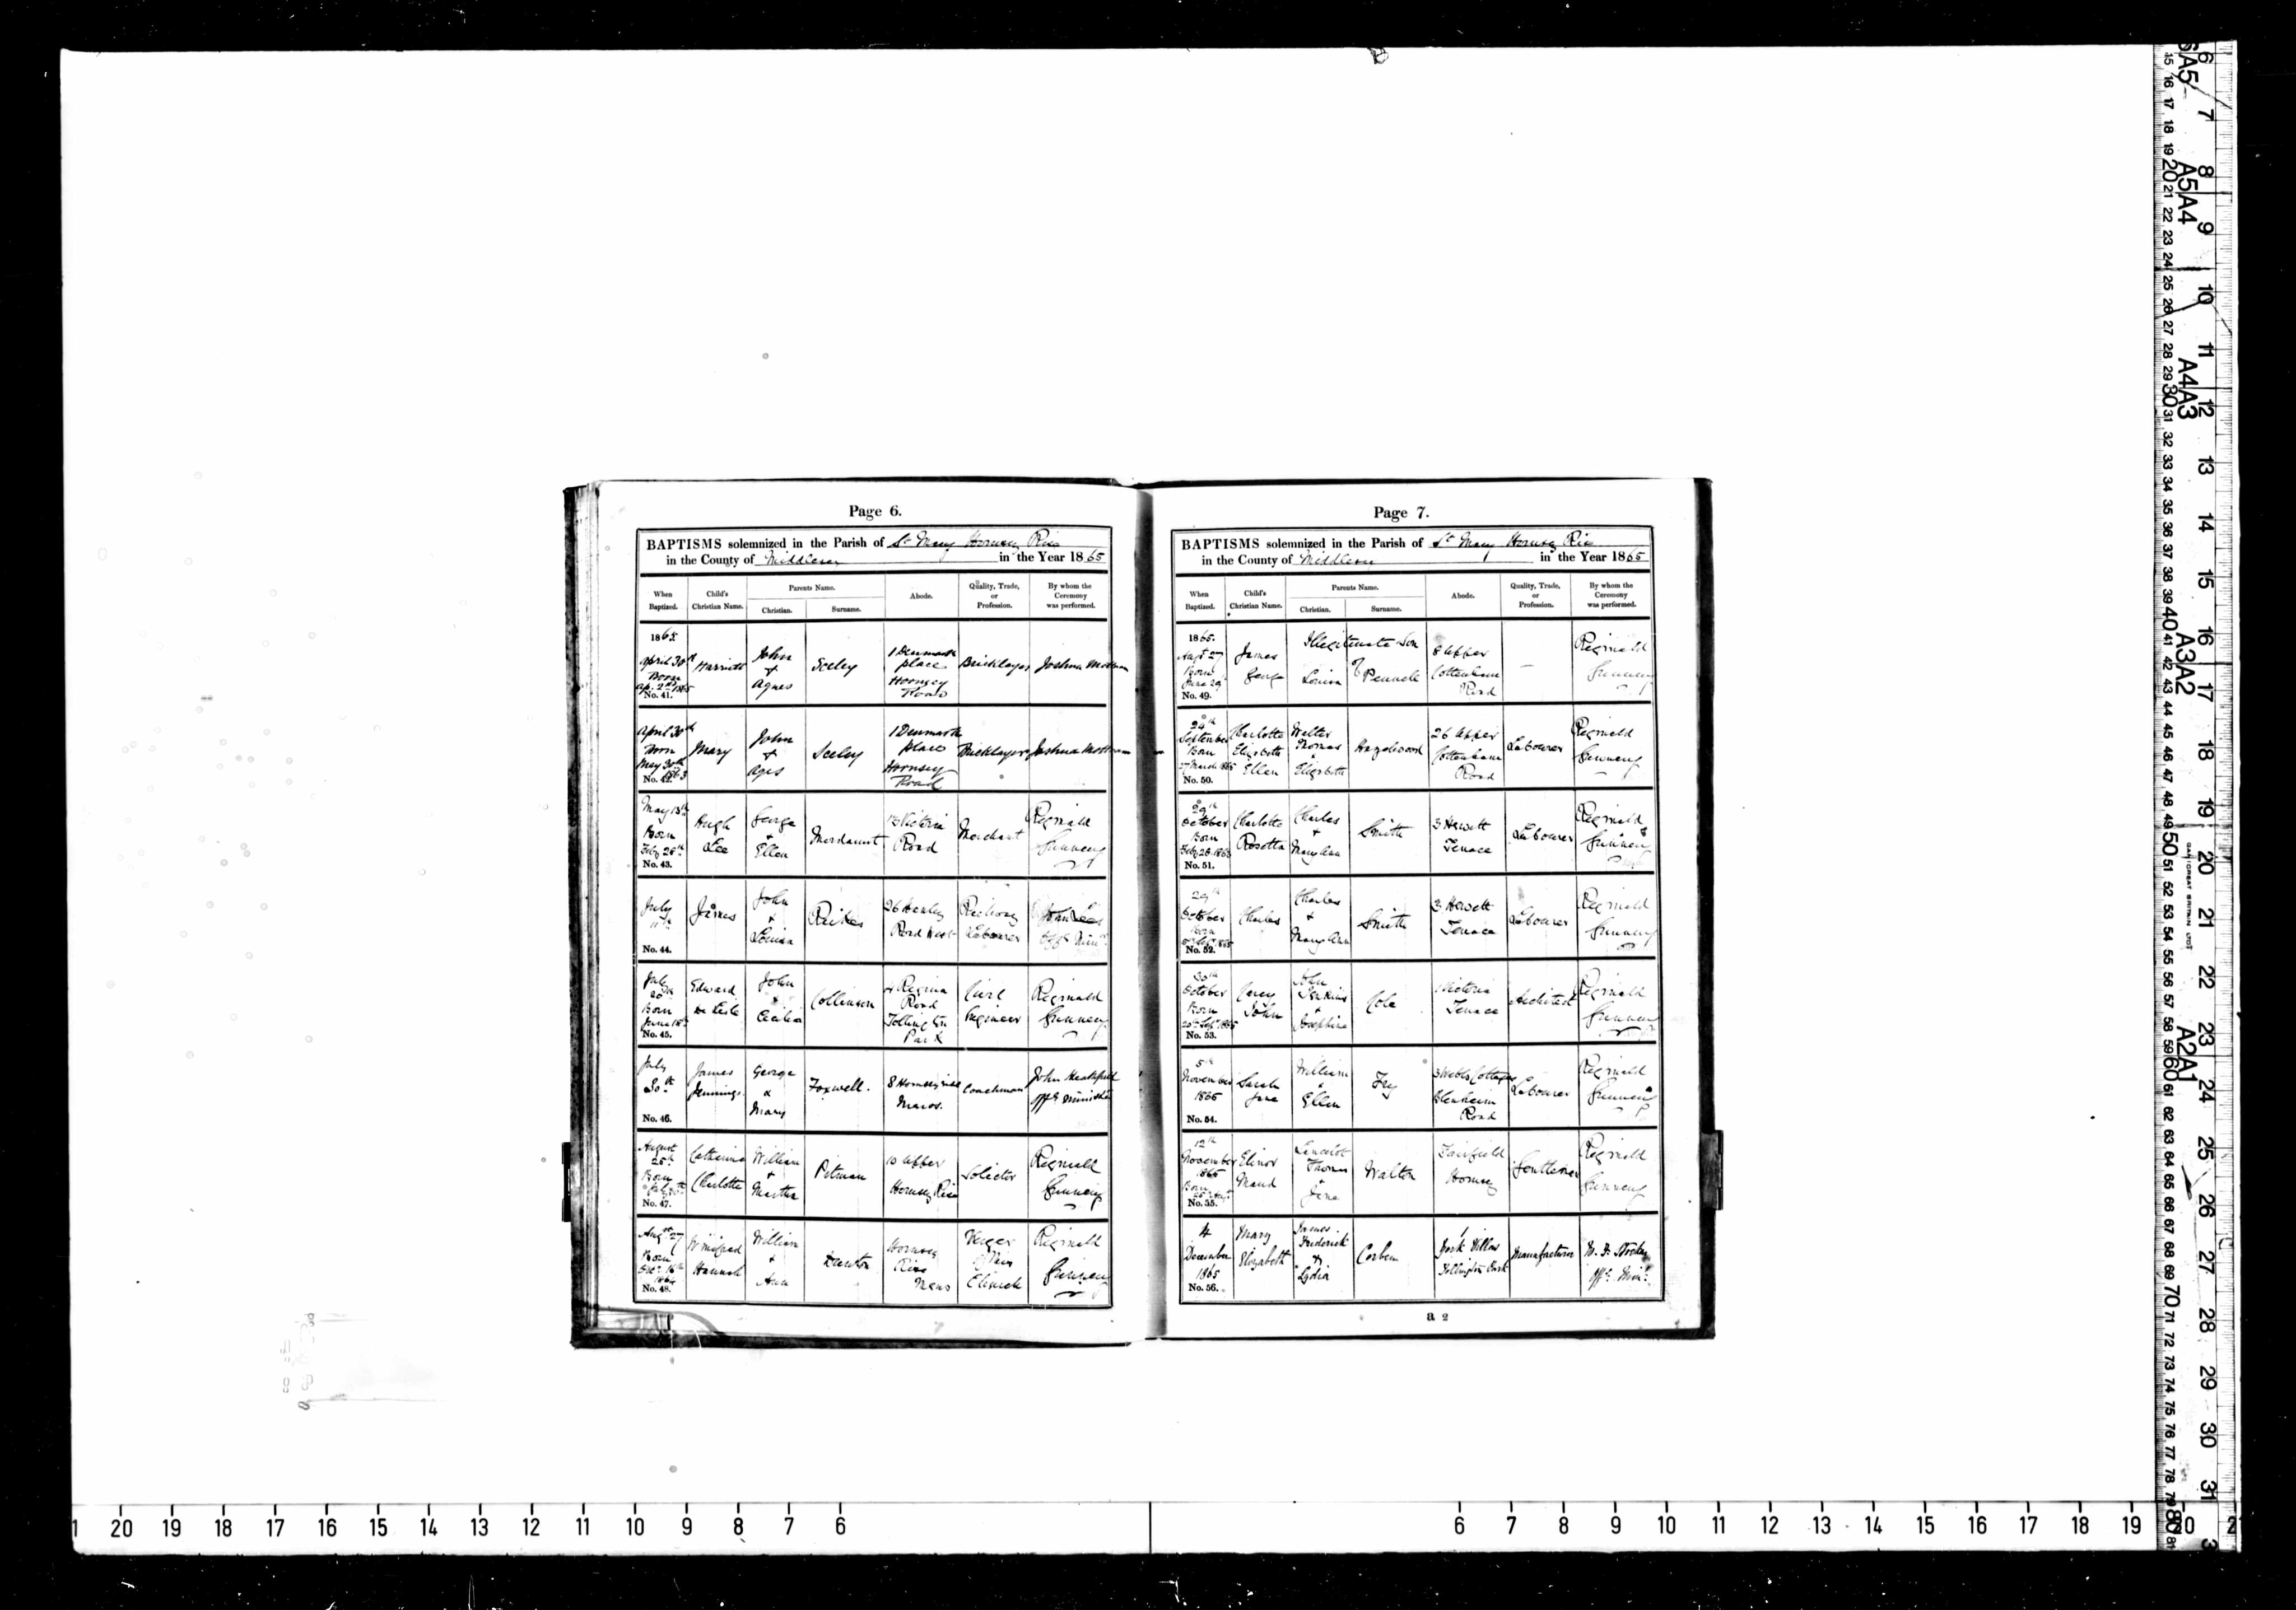 Page 6.
BAPTISMS solemnized in the Parish of St Mary Hornsey Rise
in the County of Middlesex in the Year 1865
When Baptized. Child's Christian Name. Parents Name. Christian. Surname. Abode. Quality, Trade, or Profession. By whom the Ceremony was performed.
1865 April 30th Born Ap. 2nd 1865 No. 41. Harriett John + Agnes Seeley 1 Denmark place Hornsey Road Bricklayer Joshua
April 30th Born May 30th 1863 No. 42. Mary John + Agnes Seeley 1 Denmark place Hornsey Road Bricklayer Joshua
May 13th Born Feby 28th No. 43. Hugh Lee George + Ellen Mordaunt 13 Victoria Road Merchant Reginald Gunnery
July 11th No. 44. James John + Louisa 26 Henley Road West Labourer
July 20th Born June 18th No. 45. Edward De Lisle John & Cecilia Collinson Regina Road Tollington Park Civil Engineer Reginald Gunnery
July 30th No. 46. James Jennings George & Mary Foxwell. 8 Hornsey rise Mews. Coachman John Heathfield offg minister
August 25th Born No. 47. Catherine Charlotte William + Martha Pitman 10 Upper Hornsey Rise Solicitor Reginald Gunnery
Augst 27 Born 1864 No. 48. Winifred Hannah William + Ann Hornsey Rise Mews Verger of this Church Reginald Gunnery
Page 7.
BAPTISMS solemnized in the Parish of St Mary Hornsey Rise
in the County of Middlesex in the Year 1865
When Baptized. Child's Christian Name. Parents Name. Christian. Surname. Abode. Quality, Trade, or Profession. By whom the Ceremony was performed.
1865. Augt 27 Born June 29 No. 49. James George Illegitimate Son of Louisa Pennell 8 Upper Cottenham Road — Reginald Gunnery
24th September Born 27 March 1865 No. 50. Charlotte Elizabeth Ellen Walter Thomas & Elizabeth Hazelwood 26 Upper Cottenham Road Labourer Reginald Gunnery
29th October Born Feby 26 1863 No. 51. Charlotte Rosetta Charles + Mary Ann Smith 3 Hewett Terrace Labourer Reginald Gunnery
29th October Born No. 52. Charles Charles + Mary Ann Smith 3 Hewett Terrace Labourer Reginald Gunnery
30th October Born 20th Sept 1865 No. 53. Carey John John Jenkins & Josephine Cole Victoria Terrace Architect Reginald Gunnery
5th November 1865 No. 54. Sarah Jane William & Ellen Fry 3 Webbs Cottages Blenheim Road Labourer Reginald Gunnery
12th November 1865 Born No. 55. Elinor Maud Lancelot Thomas & Jane Walton Fairfield Hornsey Gentleman Reginald Gunnery
4 December 1865 No. 56. Mary Elizabeth James Frederick & Lydia Corben 1 York Villas Tollington Park Manufacturer offg Minr
a 2
6 7 8 9 10 11 12 13 14 15 16 17 18 19 20 21 22 23 24 25 26 27 28 29 30 31
A5 A4 A4 A3 A3 A2 A2 A1
20 19 18 17 16 15 14 13 12 11 10 9 8 7 6
6 7 8 9 10 11 12 13 14 15 16 17 18 19 20